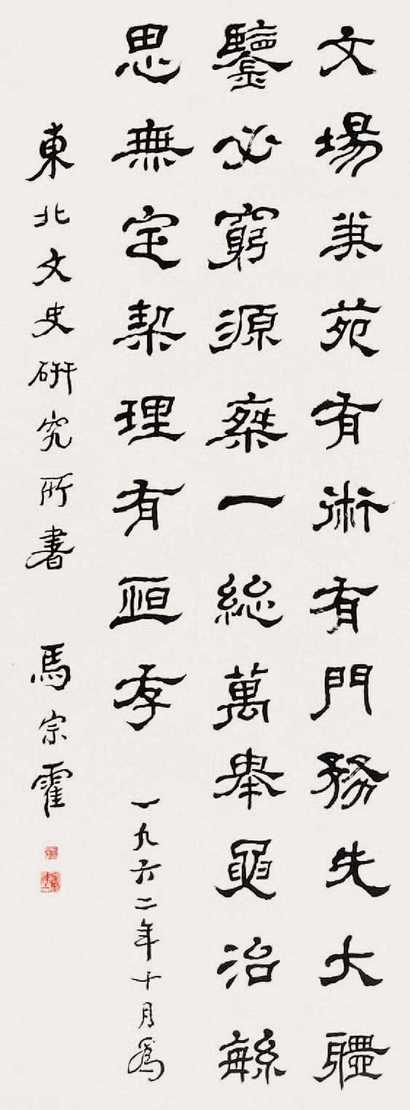 文場筆苑有術有門務先大體
鑒必窮源乘一總萬舉要治緐
思無定契理有恆存 一九六二年十月爲
東北文史研究所書 馬宗霍